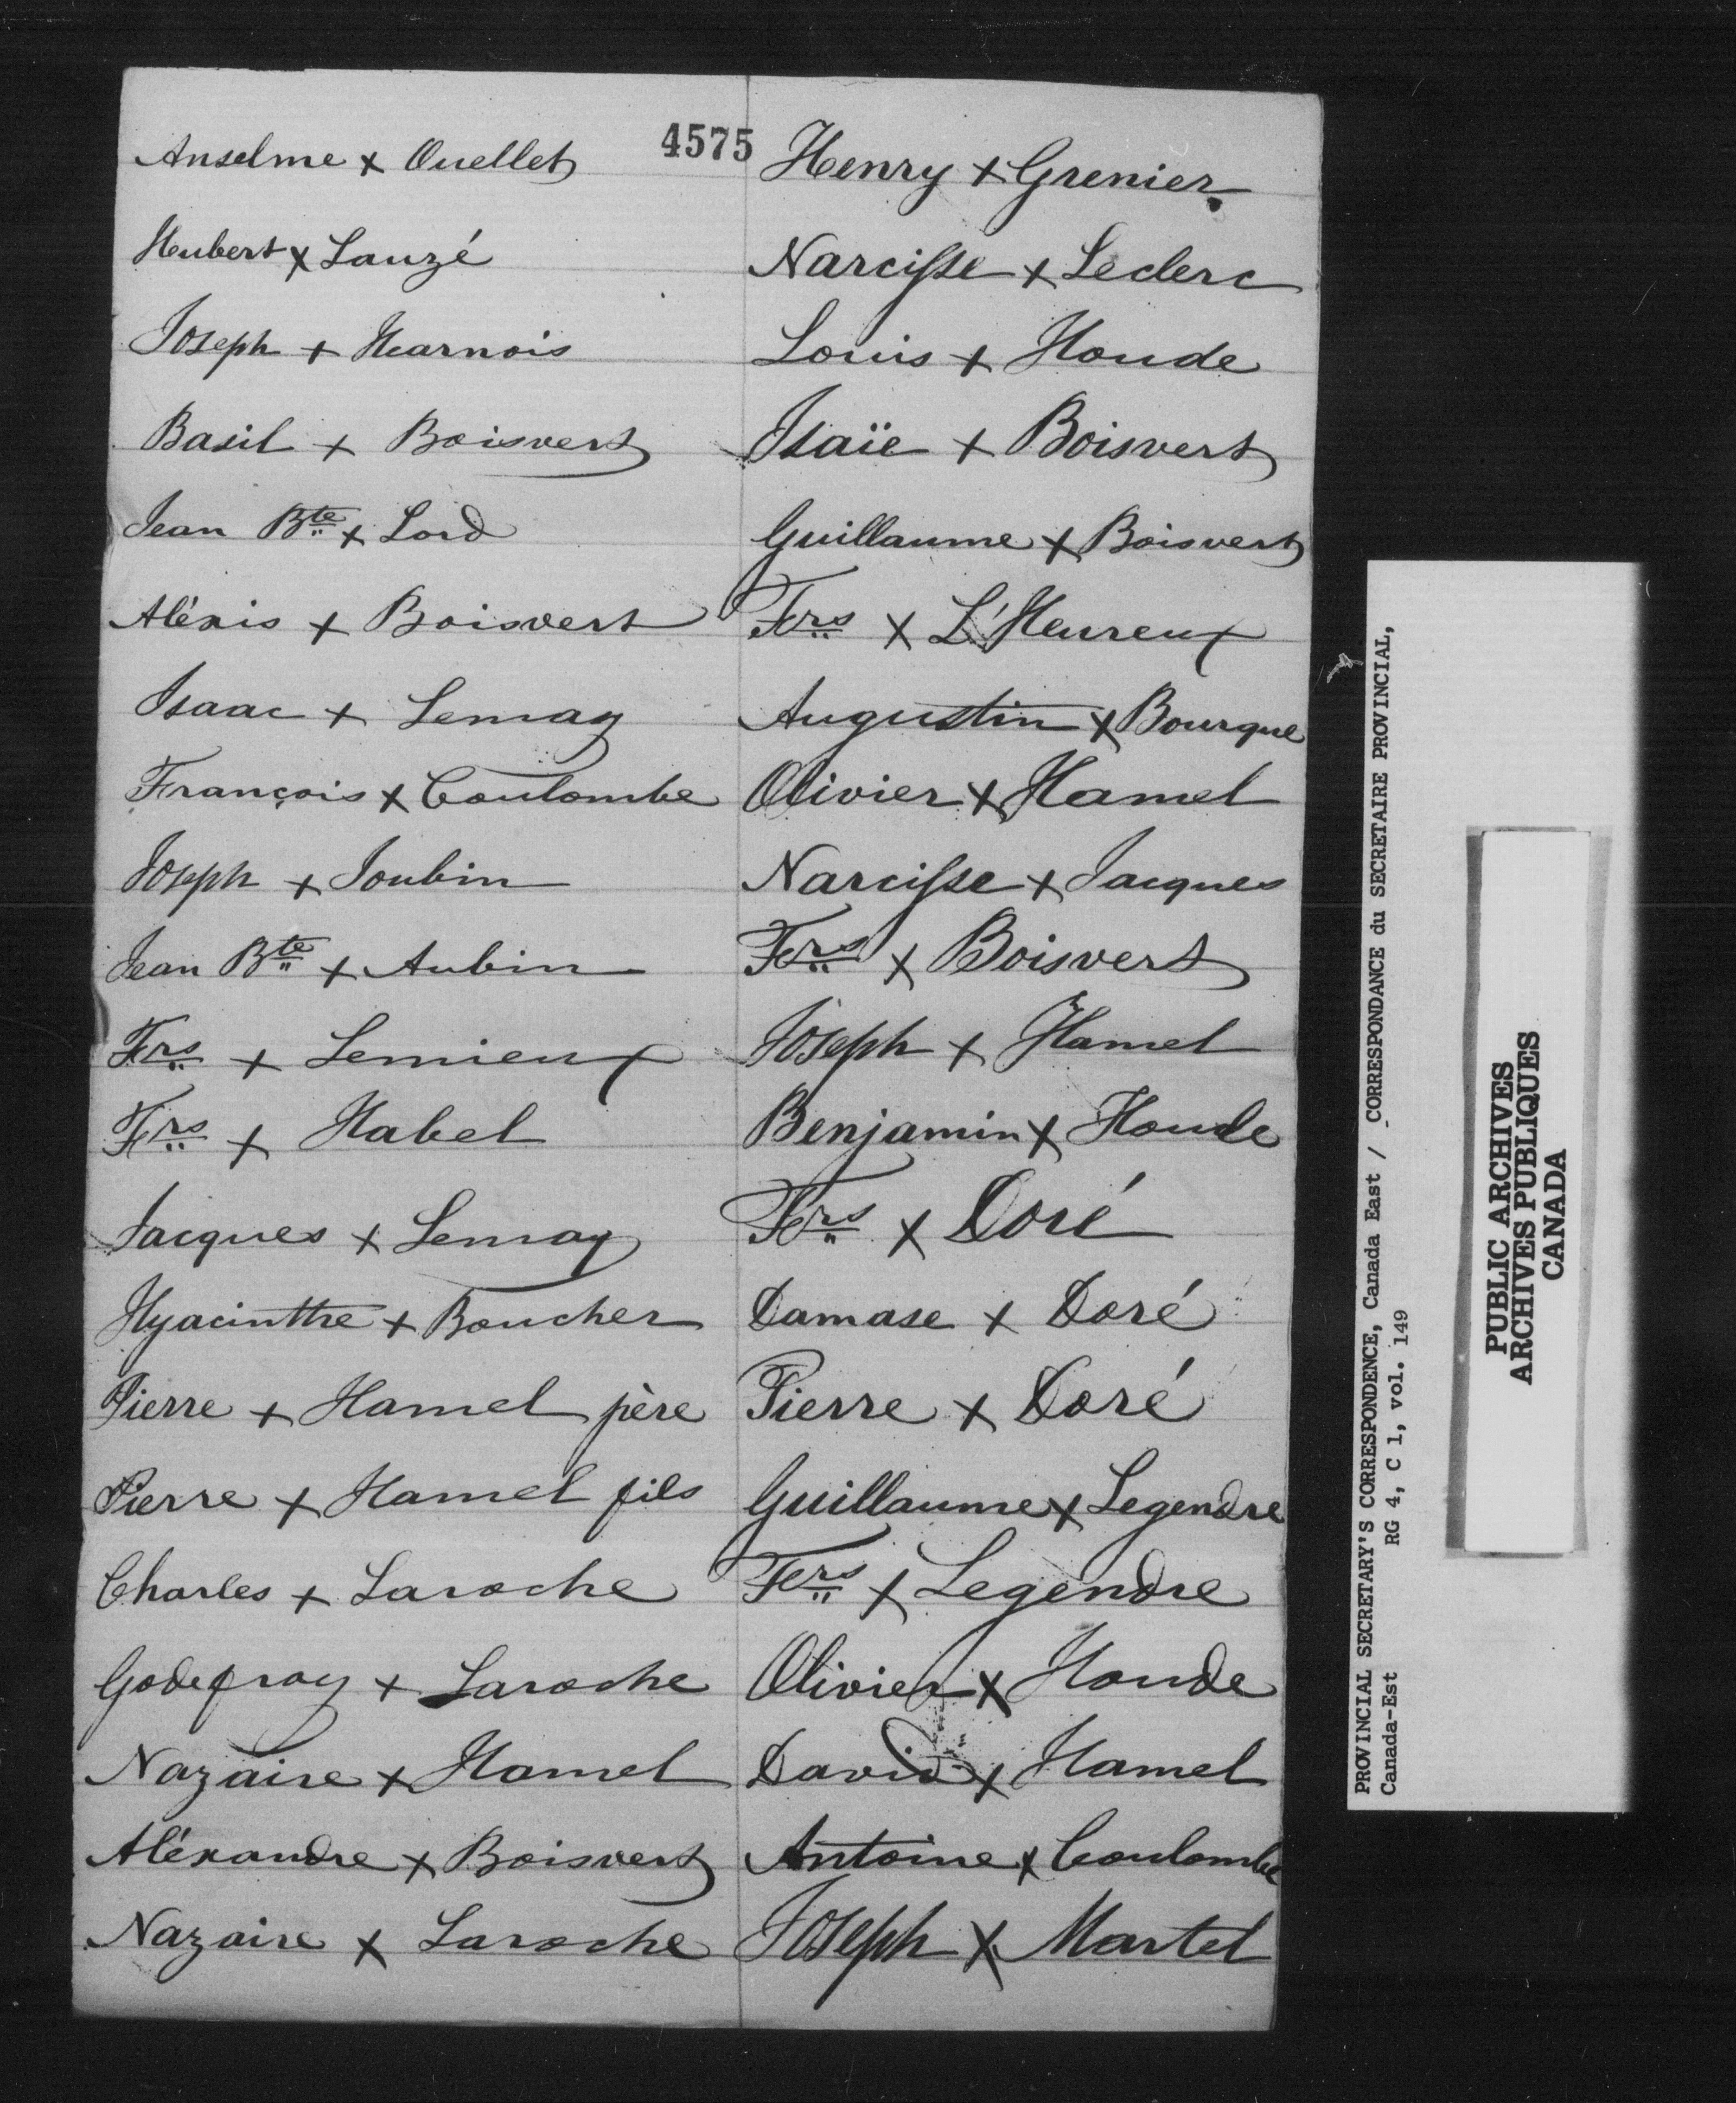 4575
Anselme x Ouellet
Hubert x Lauzé
Joseph + Hearnois
Basil + Boisvert
Jean Bte x Lord
Aléxis + Boisvert
Isaac + Lemay
François x Coulombe
Joseph + Joubin
Jean Bte + Aubin
Frs + Lemieux
Frs + Habel
Jacques x Lemay
Hyacinthe + Boucher
Pierre + Hamel père
Pierre + Hamel fils
Charles + Laroche
Godefroy + Laroche
Nazaire x Hamel
Aléxandre x Boisvert
Nazaire x Laroche
Henry + Grenier
Narcisse + Leclerc
Louis + Houde
Isaïe + Boisvert
Guillaume x Boisvert
Frs x L'Heureux
Augustin x Bourque
Olivier x Hamel
Narcisse + Jacques
Frs x Boisvert
Joseph + Hamel
Benjamin x Houde
Frs x Doré
Damase x Doré
Pierre x Doré
Guillaume x Legendre
Frs x Legendre
Olivier x Houde
David x Hamel
Antoine x Coulombe
Joseph x Martel
PROVINCIAL SECRETARY'S CORRESPONDENCE, Canada East / CORRESPONDANCE du SECRETAIRE PROVINCIAL,
Canada-Est RG 4, C 1, vol. 149
PUBLIC ARCHIVES
ARCHIVES PUBLIQUES
CANADA